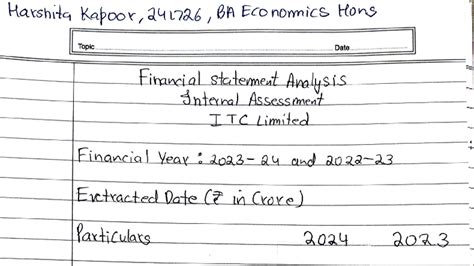 Harshita Kapoor, 241726, BA Economics Hons
Topic Date
Financial Statement Analysis
Internal Assessment
ITC Limited
Financial Year : 2023-24 and 2022-23
Extracted Date (₹ in Crore)
Particulars 2024 2023